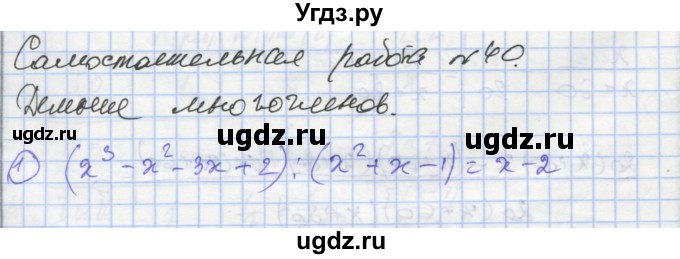 Угдз.ру
Самостоятельная работа №40.
Деление многочленов.
1) (x³ - x² - 3x + 2) : (x² + x - 1) = x - 2
ugdz.ru ugdz.ru ugdz.ru
ugdz.ru ugdz.ru